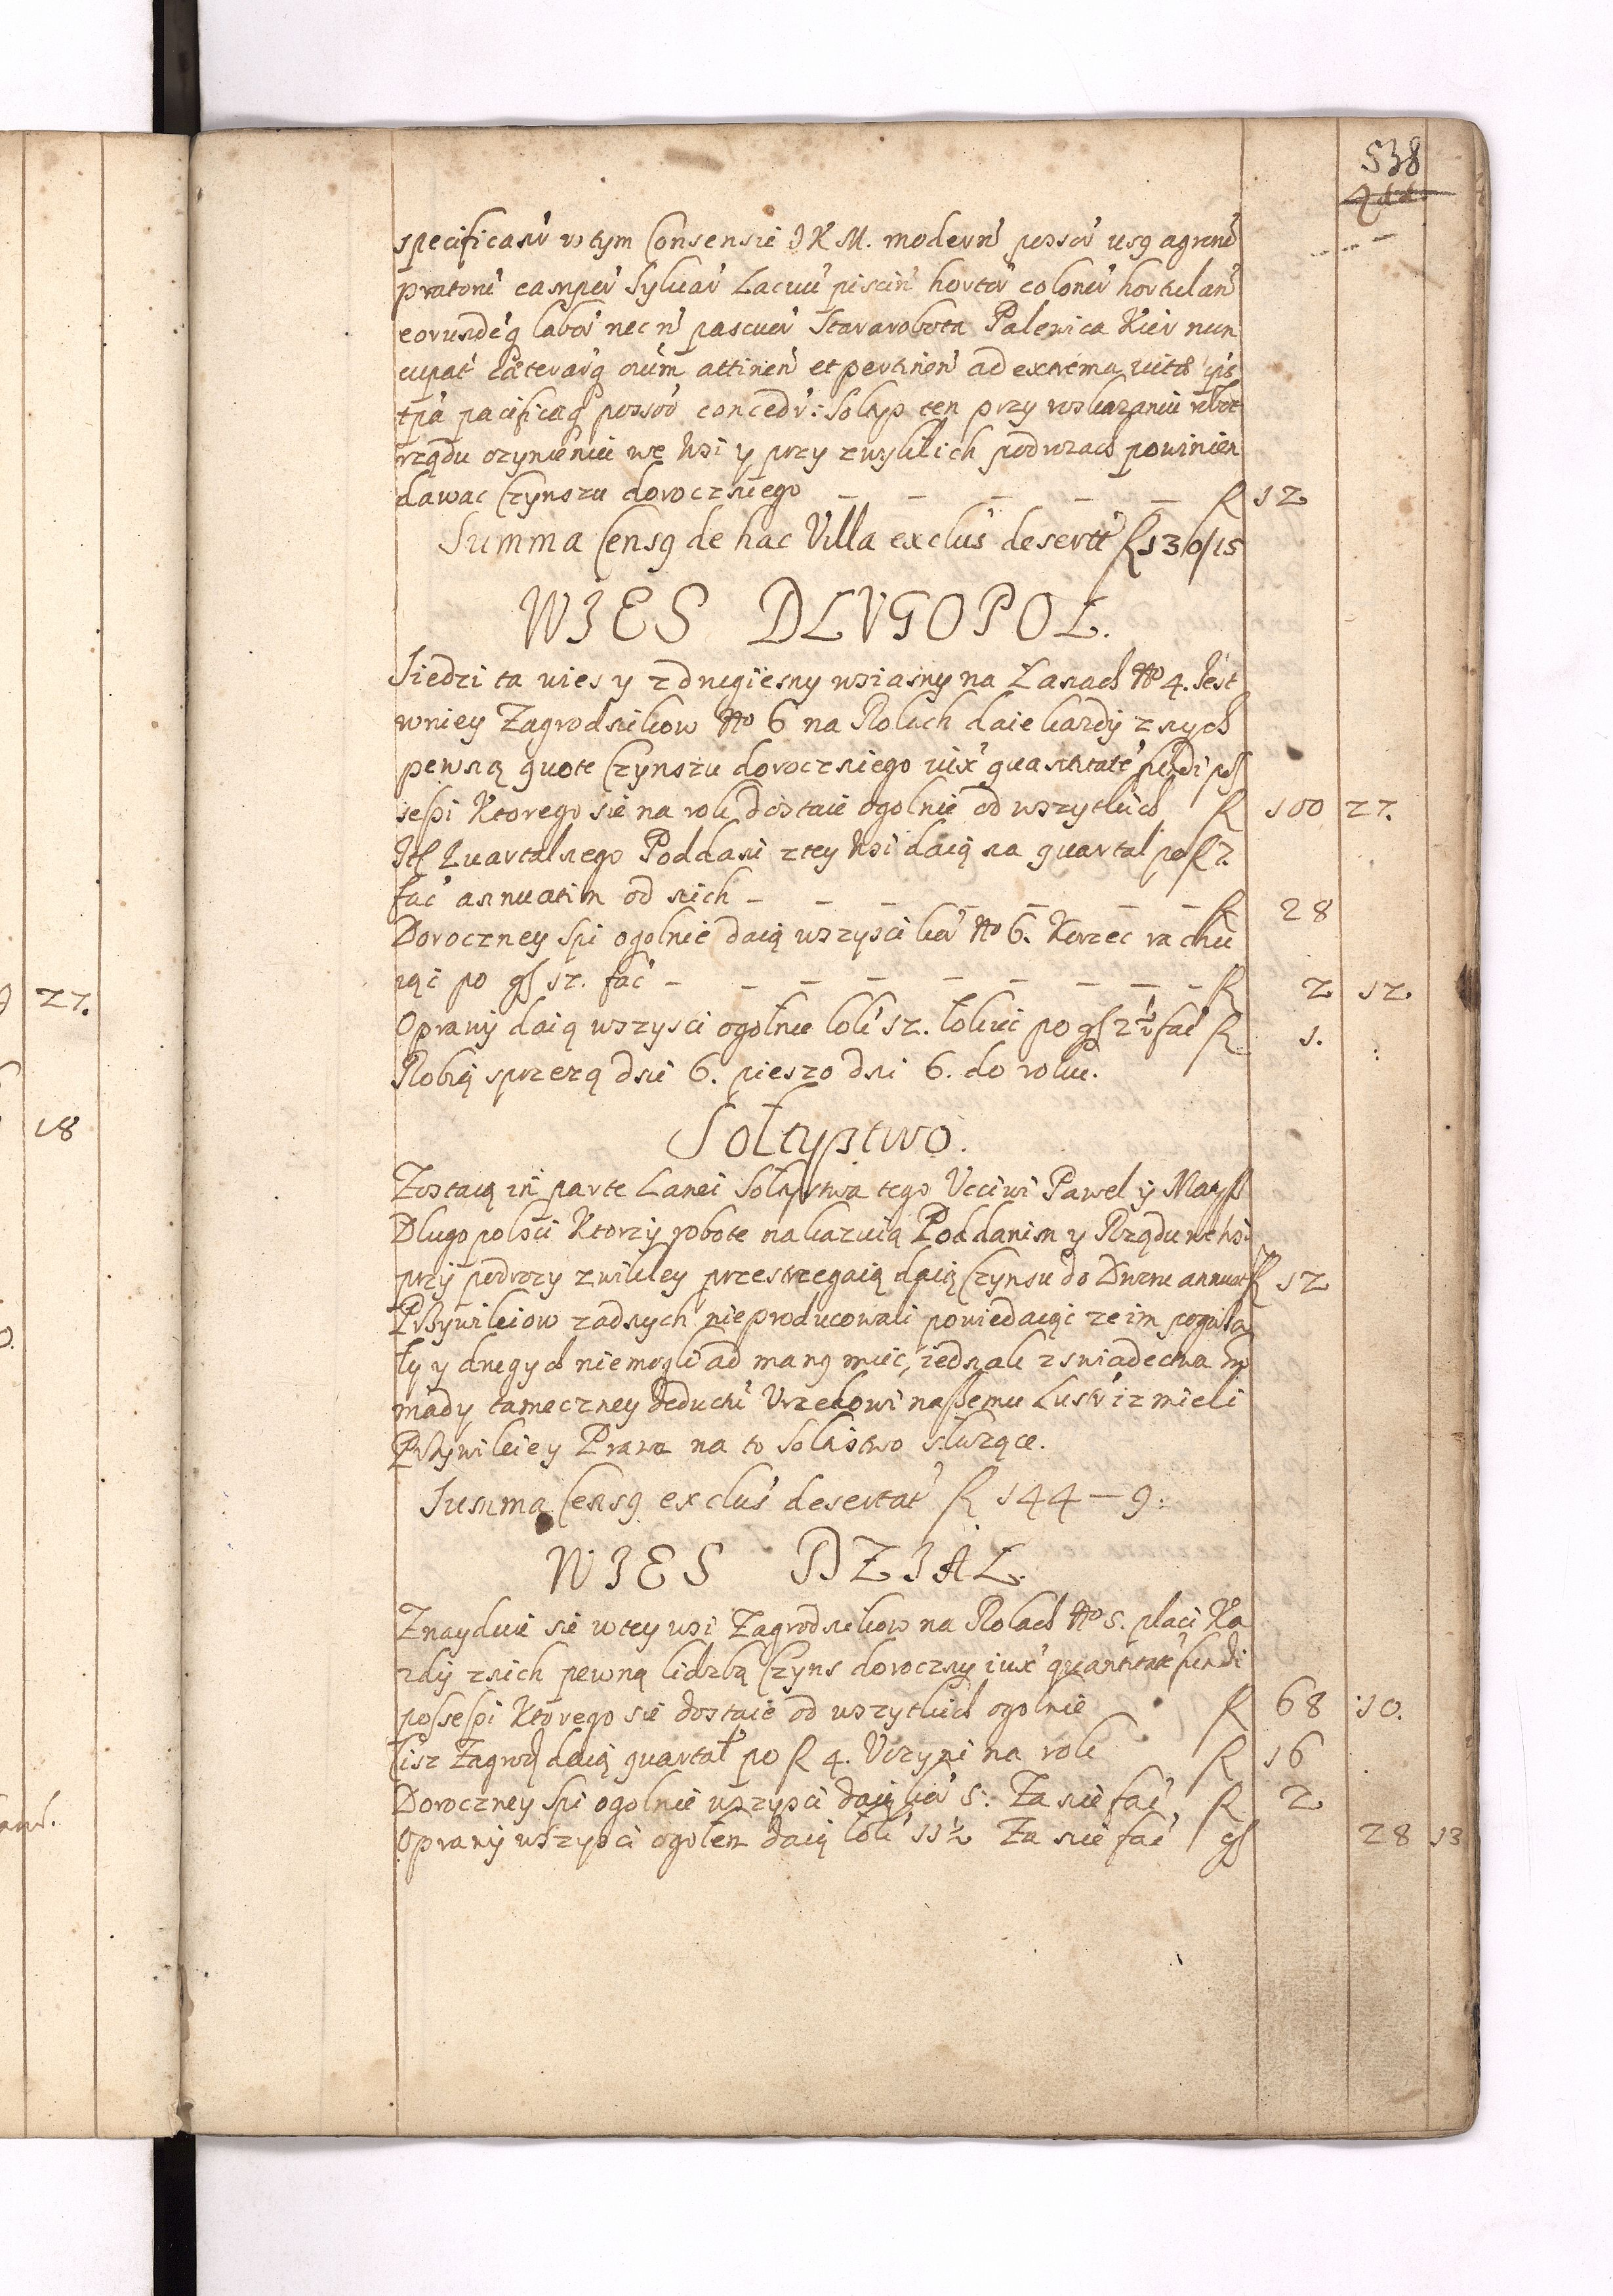 538
specificasti w tym Consensie I K M. modern possor usq agroru
pratoru campor Sylvar Lacuu piscin hortor colonor hortulan
eorundeq labor nec n pascuor Stararobota Palenica Kier nun
cupat caeteraq oium attinen et pertinen ad extrema vitae ips
pacificaq possor conced: Soltys ten przy wskazaniu robot
rządu czynieniu we wsi y przy zwykłich podwodach powinien
dawac Czynszu dorocznego – – – – – R 12
Summa Censq de hac Villa exclus desertt R 130/15
WIES DLVGOPOL.
Siedzi ta wies y z drugiesmy wsiasmy na Lanach No 4. Jest
wniey Zagrodnikow No 6 na Rolach daie kazdy znych
pewną quote Czynszu dorocznego iux quantitate fundi pos
sessi Ktorego sie na rok dostaie ogolnie od wszytkich R 100 27.
It Quartalnego Poddani z tey wsi daią na quartal po R 7
fac annuatim od nich – – – – – – R 28
Doroczney Spi ogolnie daią wszysci kor No 6. Korzec rachu
iąc po gſ 12. fac – – – – – – – – R 2 12.
Oprawy daią wszysci ogolnie lok 12. lokiec po gſ 2½ fac R 1. :
Robią sprzezą dni 6. pieszo dni 6. do roku.
Soltystwo.
Zostaią in parte Lanei Soltystwa tego Ucciwi Pawel y Matys
Dlugopolsci Ktorzy robote nakazuią Poddanim y Rządu we wsi
przy podrozy zwikley przestrzegaią daią Czynsu do Dworu annuat R 12
Przywileiow zadnych nie producowali powiedaiąc ze im pogina
ly y drugych niemogli ad manq miec, iednak z swiadectwa gro
mady tameczney deduchi Urzedowi naszemu Lustr iz mieli
Przywileie y Prawa na to Soltistwo sluzące.
Summa Censq exclus desertat R 144 – 9.
WIES DZIAL.
Znayduie sie w tey wsi Zagrodnikow na Rolach No 5. placi Ka
zdy z nich pewną lidzbą Czyns doroczny iux quantitat fundi
possessi Ktorego sie dostaie od wszytkich ogolnie R 68 :10.
Cisz Zagrod daią quartał po R 4. Uczyni na rok R 16
Doroczney Spi ogolnie wszysci daią kor 5. Za nie fac R 2
Oprawy wszysci ogolem daią lok 11½ Za nie fac gſ 28 13
27.
18